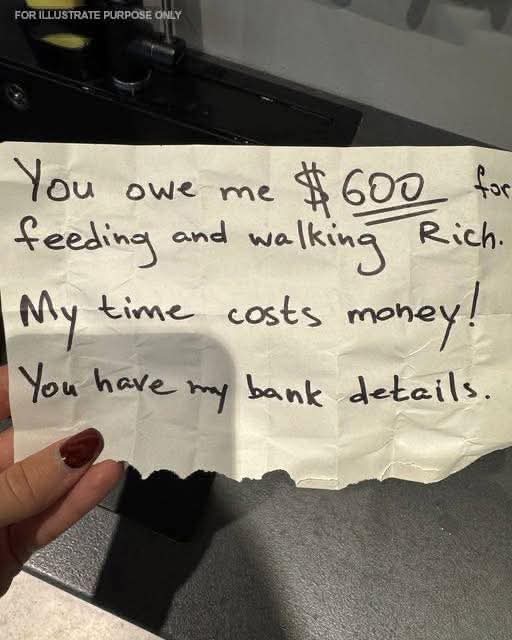 FOR ILLUSTRATE PURPOSE ONLY
You owe me $600 for
feeding and walking Rich.
My time costs money!
You have my bank details.